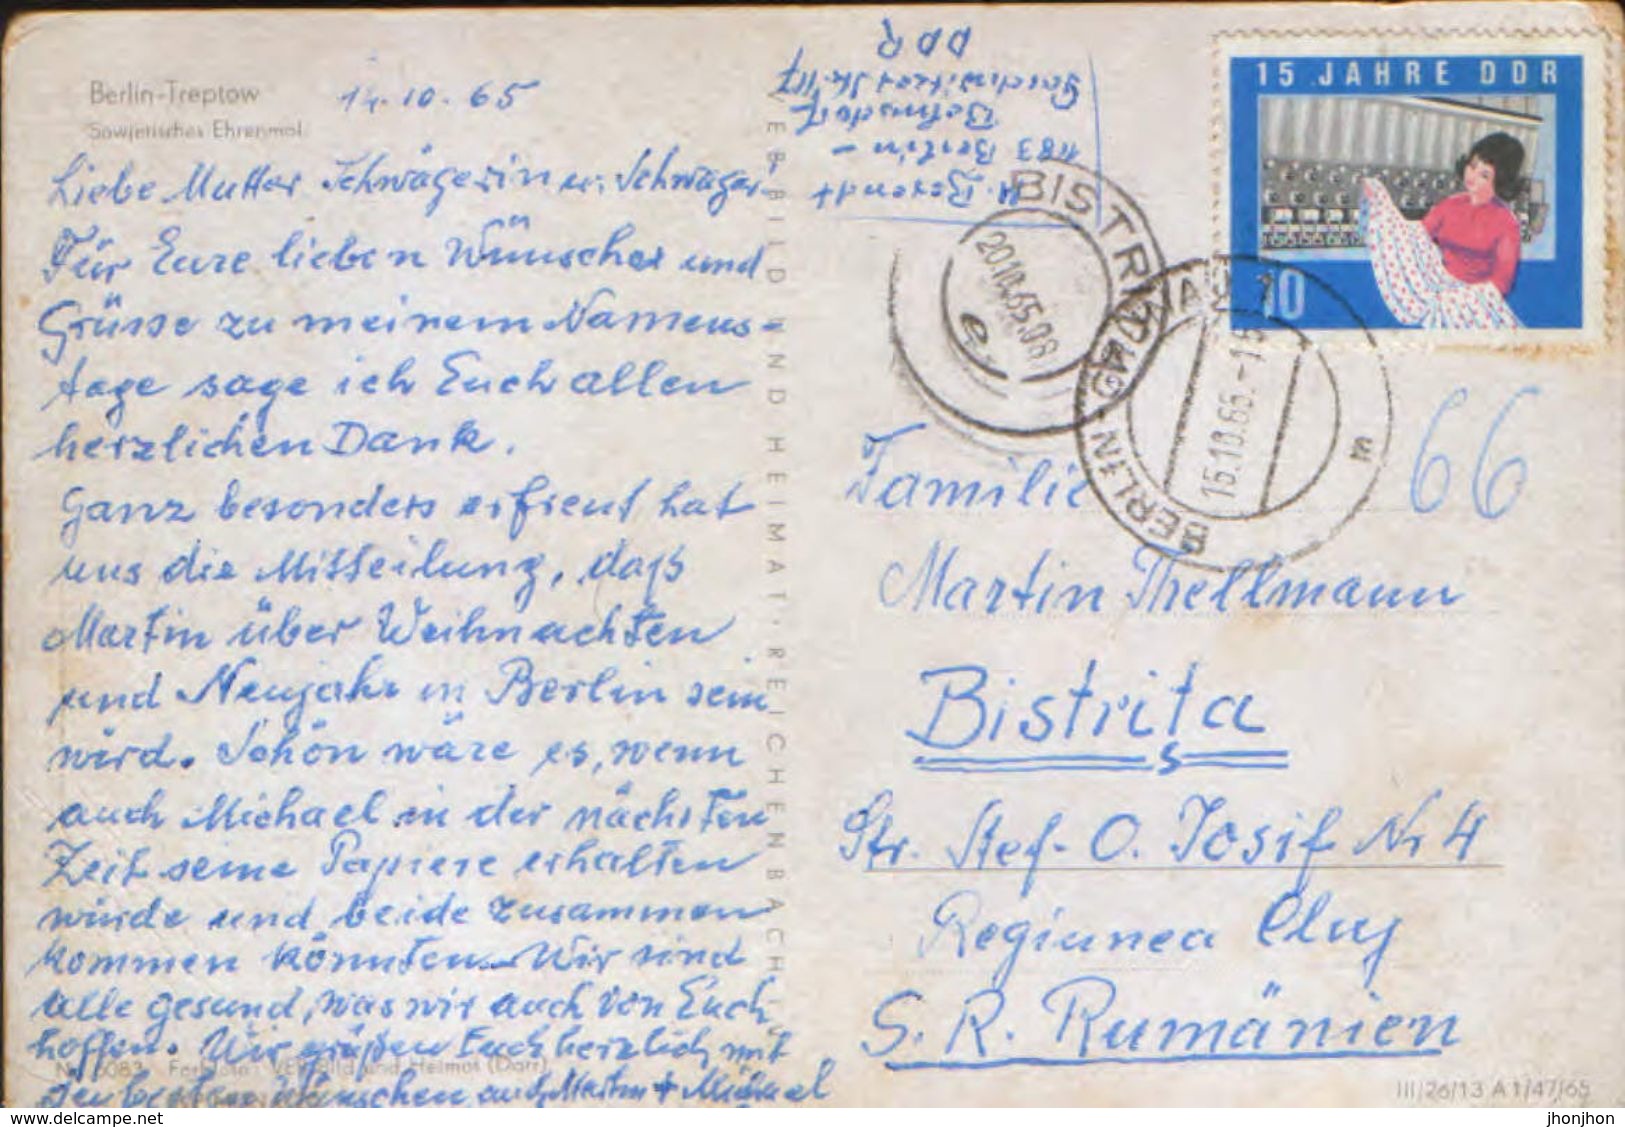 Berlin-Treptow
Sowjetisches Ehrenmal
14.10.65
Liebe Mutter Schwägerin u. Schwager
Für Eure lieben Wünsche und
Grüsse zu meinem Namens-
tage sage ich Euch allen
herzlichen Dank.
Ganz besonders erfreut hat
uns die Mitteilung, daß
Martin über Weihnachten
und Neujahr in Berlin sein
wird. Schön wäre es, wenn
auch Michael in der nächsten
Zeit seine Papiere erhalten
würde und beide zusammen
kommen könnten. Wir sind
alle gesund, was wir auch von Euch
hoffen. Wir grüßen Euch herzlich mit
den besten Wünschen auch Martin + Michael
VEB BILD UND HEIMAT · REICHENBACH
Berendt
1183 Berlin-
Bohnsdorf
Str. 117
DDR
15 JAHRE DDR
10
BISTRITA
20.10.65.08
BERLIN
15.10.65.-15
66
Familie
Martin Thellmann
Bistrița
Str. Stef. O. Iosif Nr 4
Regiunea Cluj
S. R. Rumänien
VEB Bild und Heimat (Darr)
III/26/13 A 1/47/65
jhonjhon